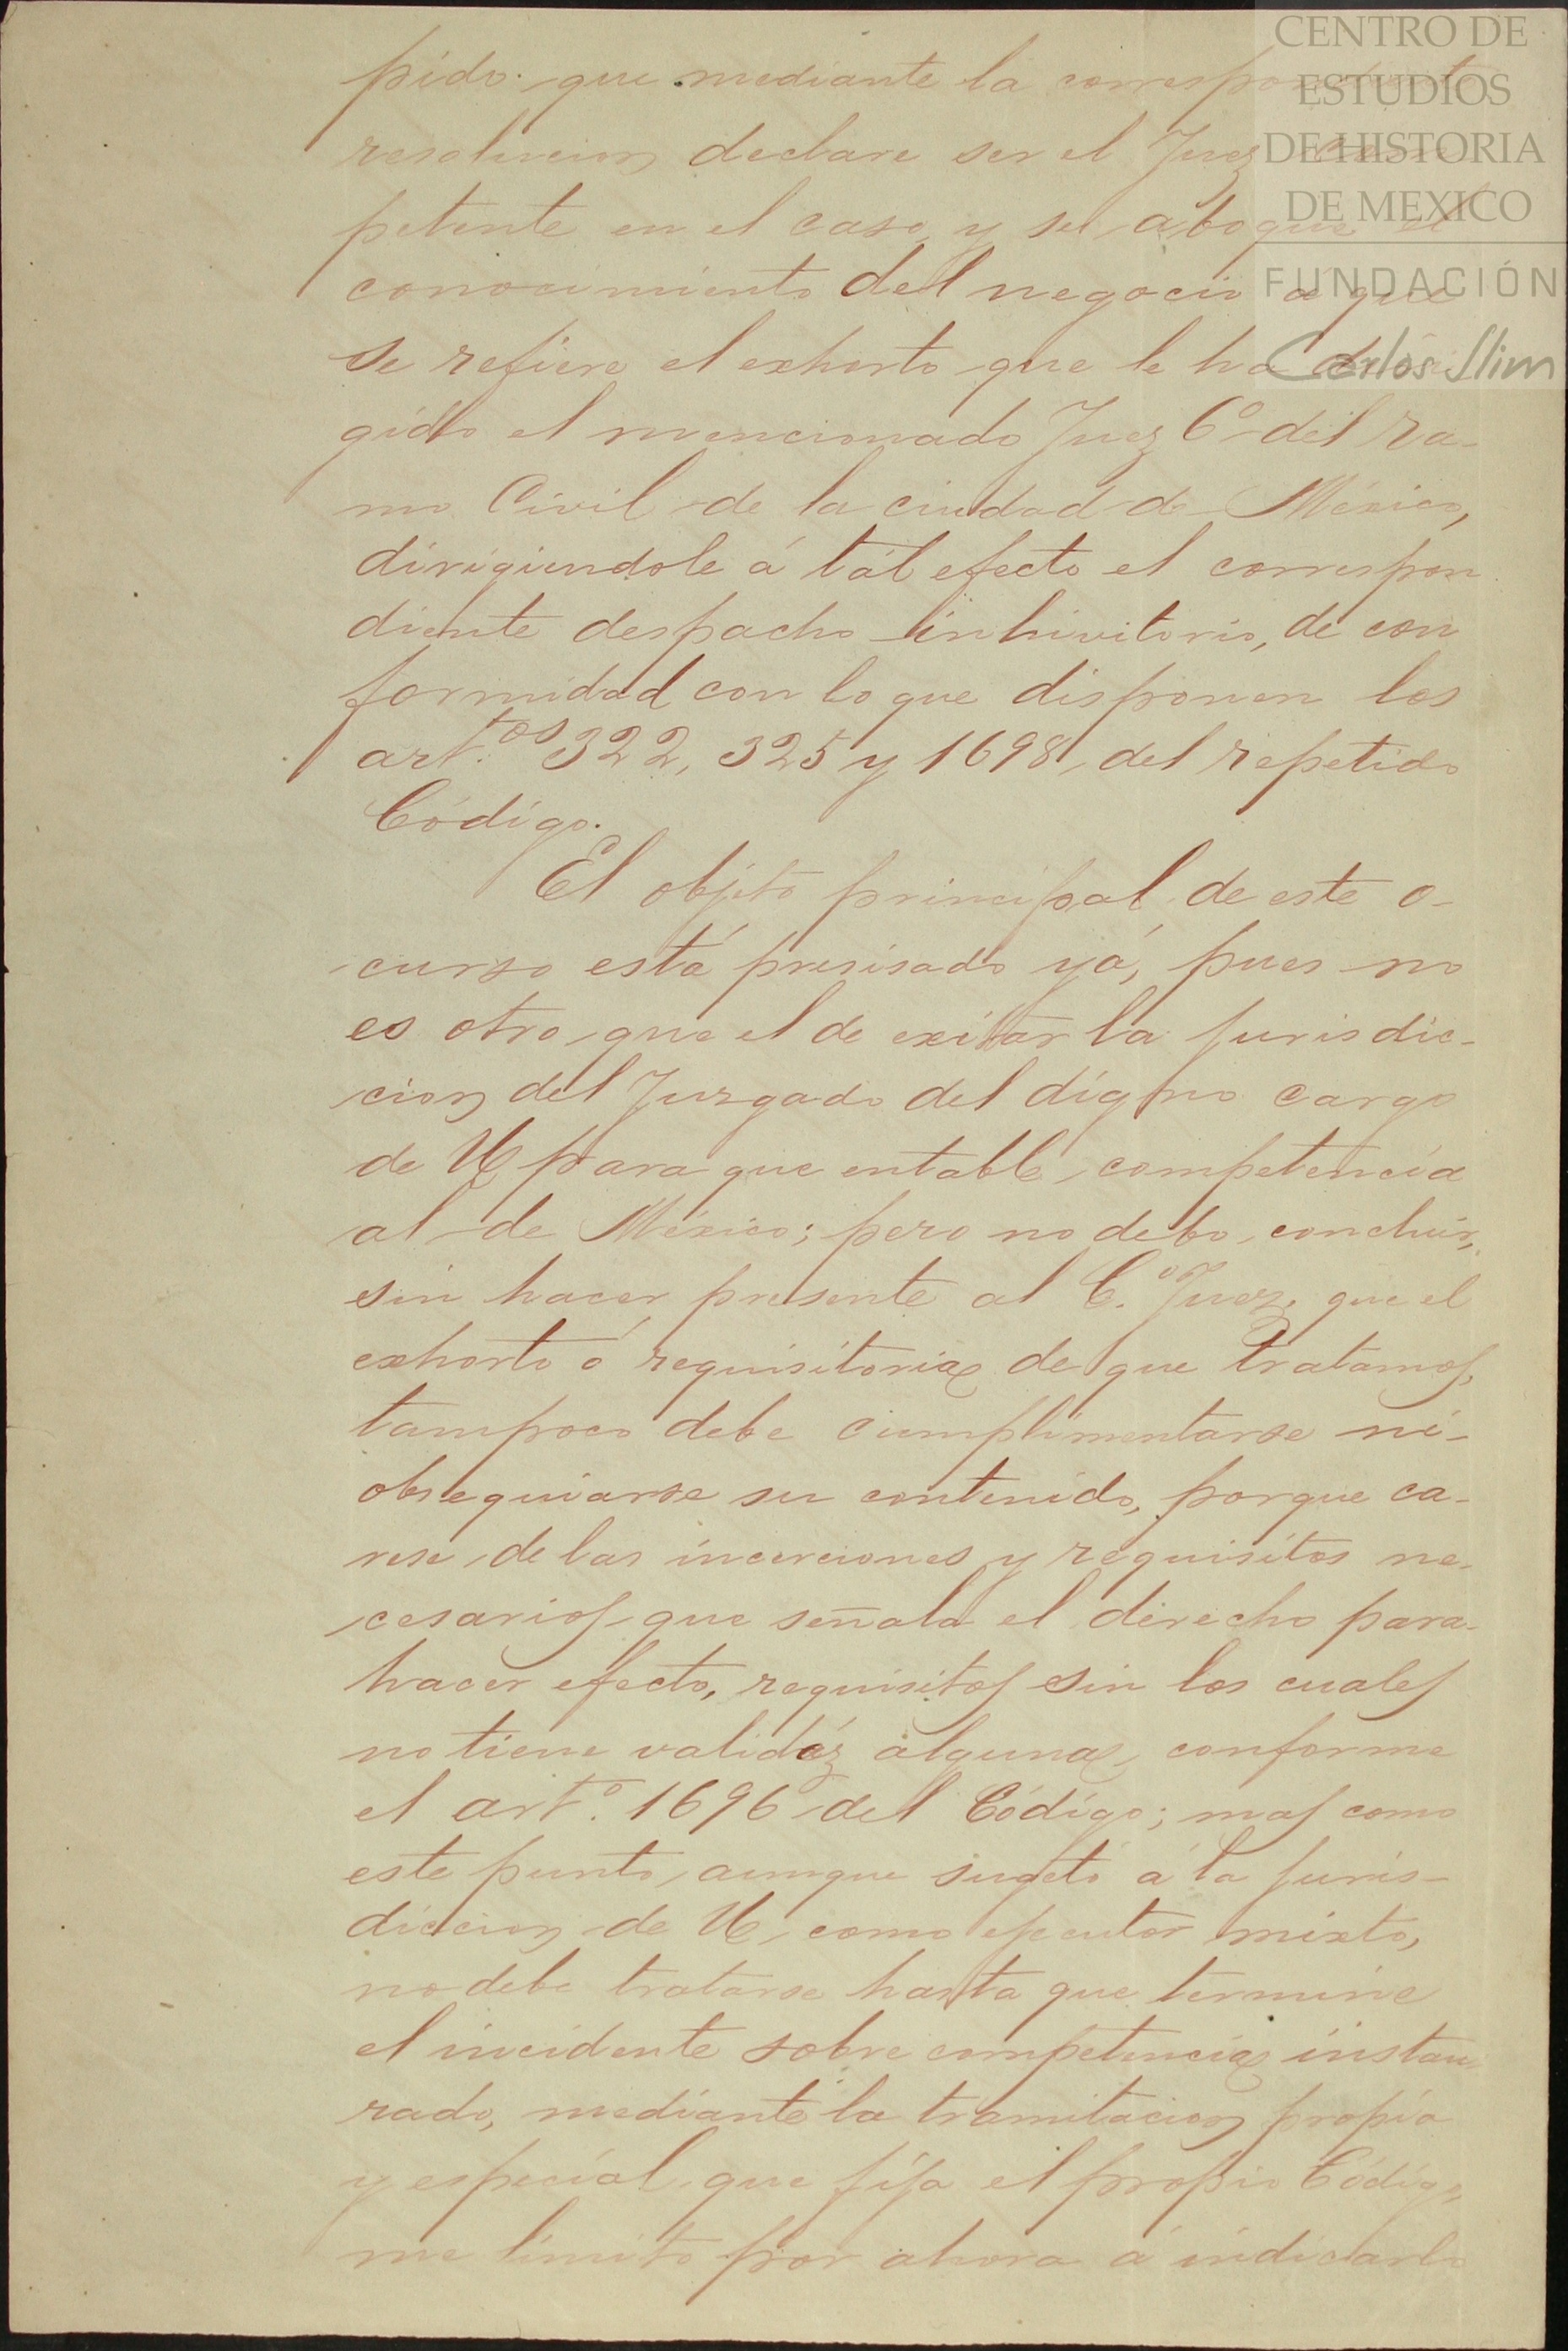 CENTRO DE
ESTUDIOS
DE HISTORIA
DE MEXICO
FUNDACIÓN
Carlos Slim
pido que mediante la correspondiente
resolucion, declare ser el Juez com
petente en el caso, y se aboque el
conocimiento del negocio a que
se refiere el exhorto que le ha diri
gido el mencionado Juez 6º del ra-
mo Civil de la ciudad de México,
dirigiendole á tál efecto el correspon
diente despacho inhivitorio, de con
formidad con lo que disponen los
art.tos 322, 325 y 1698, del repetido
Código.
El objeto principal de este o-
curso está presisado yá, pues no
es otro que el de exitar la jurisdic-
cion del Juzgado del digno cargo
de U. para que entable competencia
al de México; pero no debo concluir,
sin hacer presente al C. Juez, que el
exhorto ó requisitoria de que tratamos,
tampoco debe cumplimentarse ni-
obsequiarse su contenido, porque ca-
rese de las incerciones y requisitos ne-
cesarios que señala el derecho para
hacer efecto, requisitos sin los cuales
no tiene validéz alguna, conforme
el artº. 1696 del Código; mas como
este punto, aunque sugeto á la juris-
diccion de U. como ejecutor mixto,
no debe tratarse hasta que termine
el incidente sobre competencia instau
rado, mediante la tramitacion propia
y especial que fija el propio Código,
me limito por ahora á indicarlo